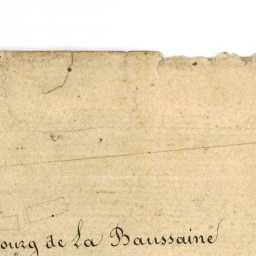 ourg de La Baussaine